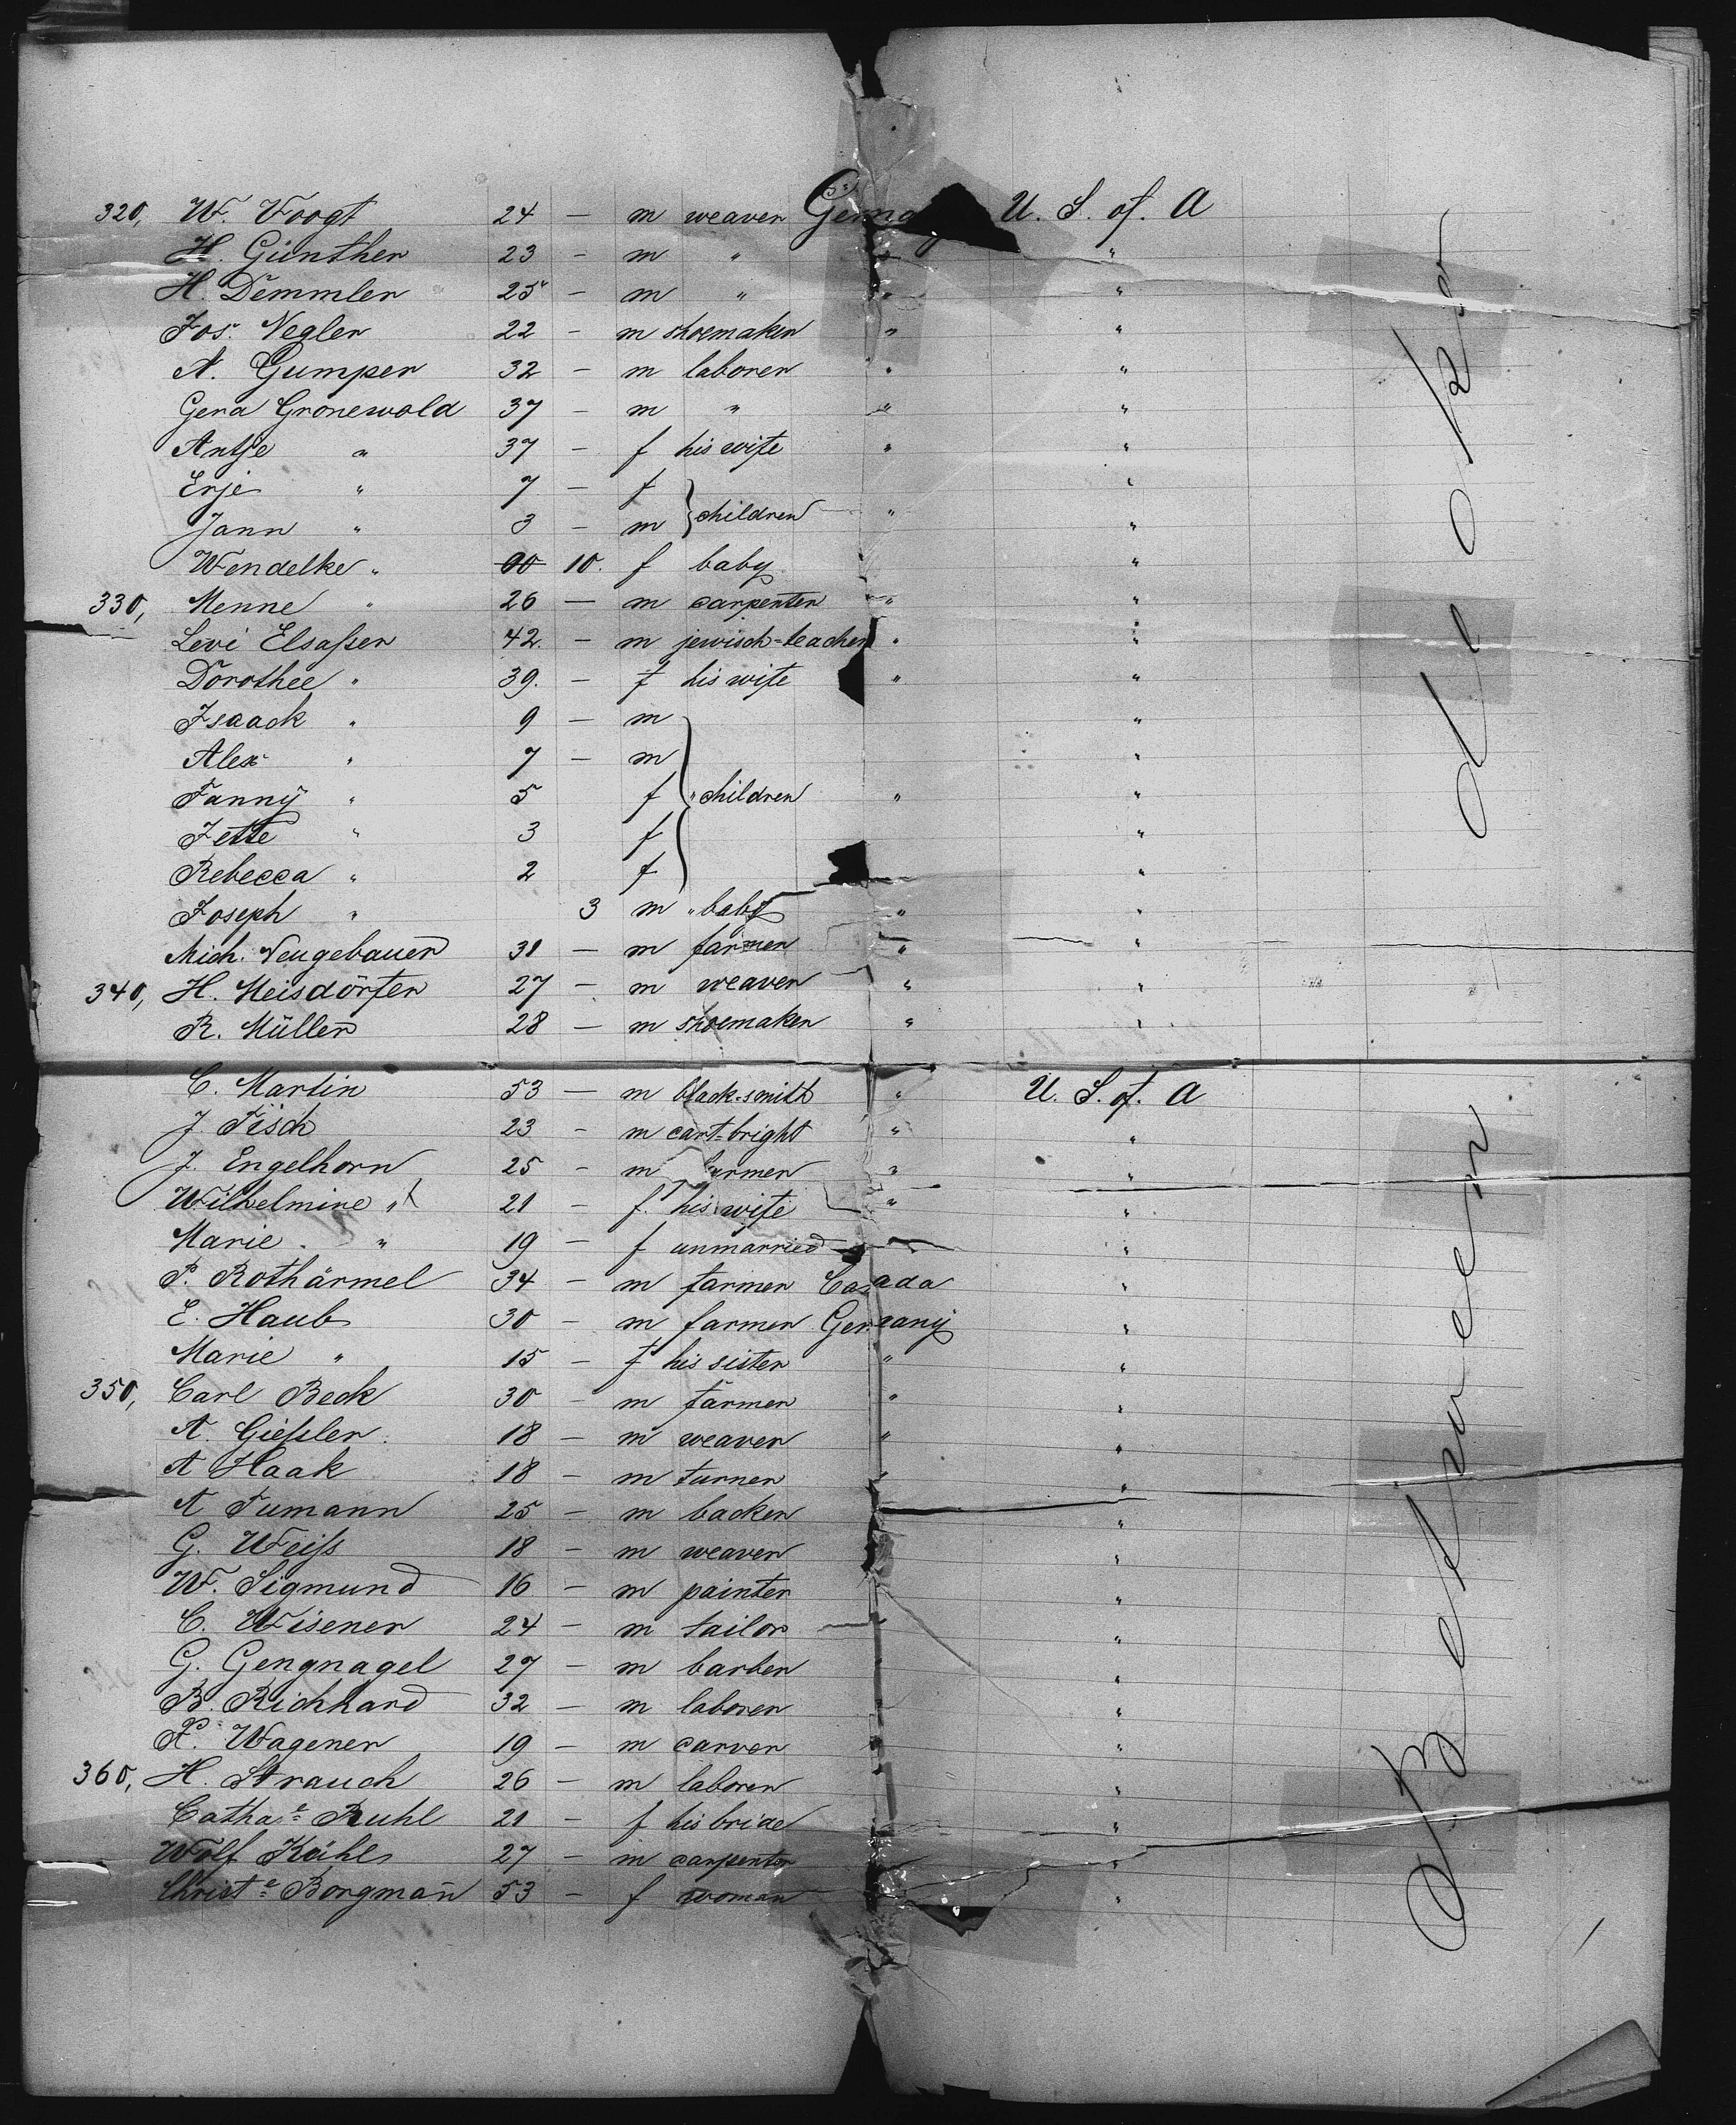 320, W. Voogt 24 — m weaver Germany U. S. of. A
H. Günther 23 — m " " "
H. Demmler 25 — m " " "
Jos. Negler 22 — m shoemaker " "
A. Gumper 32 — m laborer " "
Gerd Gronewold 37 — m " " "
Antje " 37 — f his wife " "
Erje " 7 — f "
Jann " 3 — m } children " "
Wendelke " 10. f baby "
330, Menne " 26 — m carpenter " "
Levi Elsaßer 42. — m jewisch=teacher " "
Dorothee " 39. — f his wife " "
Isaack " 9 — m "
Alex " 7 — m "
Fanny " 5 f } " children " "
Jette " 3 f "
Rebecca " 2 f "
Joseph " 3 m " baby " "
Mich. Neugebauer 31 — m farmer " "
340, H. Meisdörfer 27 — m weaver " "
R. Müller 28 — m shoemaker " "
C. Martin 53 — m black=smith " U. S. of. A
J Fisch 23 — m cart=bright " "
J. Engelhorn 25 — m farmer " "
Wilhelmine " 21 — f. his wife " "
Marie " 19 — f unmarried " "
P. Rothärmel 34 — m farmer Canada "
E. Haub 30 — m farmer Germany "
Marie " 15 — f his sister " "
350, Carl Beck 30 — m farmer " "
A. Gießler 18 — m weaver " "
A Haak 18 — m turner " "
A Tumann 25 — m backer "
G. Weiss 18 — m weaver "
W. Sigmund 16 — m painter "
C. Wisener 24 — m tailor " "
G. Gengnagel 27 — m barber "
B. Richhard 32 — m laborer "
X. Wagener 19 — m carver "
360, H. Strauch 26 — m laborer "
Cathae Ruhl 21 — f his bride "
Wolf Kühl 27 — m carpenter "
Christe Borgman̄ 53 — f woman "
Between decks